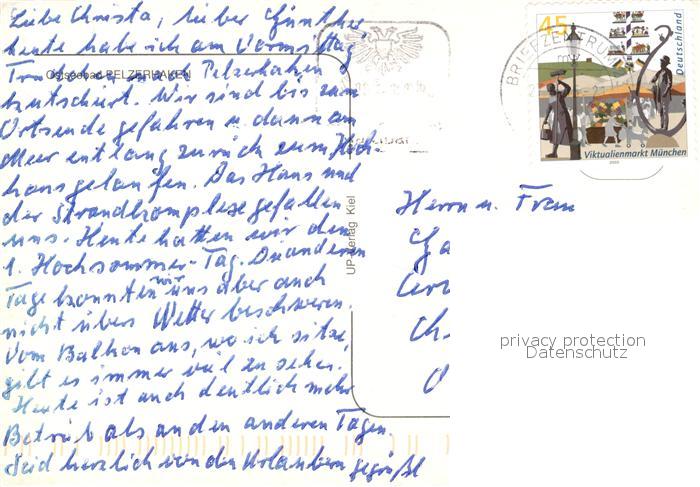 Liebe Christa, lieber Günther,
heute habe ich am Vormittag
nach Pelzerhaken
Ostseebad PELZERHAKEN
kutschiert. Wir sind bis zum
Ortsende gefahren u. dann am
Meer entlang zurück zum Hoch-
haus gelaufen. Das Haus und
der Strandkomplex gefallen
uns. Heute hatten wir den
1. Hochsommer-Tag. Die anderen
Tage konnten wir uns aber auch
nicht übers Wetter beschweren.
Vom Balkon aus, wo ich sitze,
gibt es immer viel zu sehen.
Heute ist auch deutlich mehr
Betrieb als an den anderen Tagen.
Seid herzlich von den Urlaubern gegrüßt
UP-Verlag Kiel
BRIEFZENTRUM
45
Deutschland
Viktualienmarkt München
2003
Herrn u. Frau
privacy protection
Datenschutz